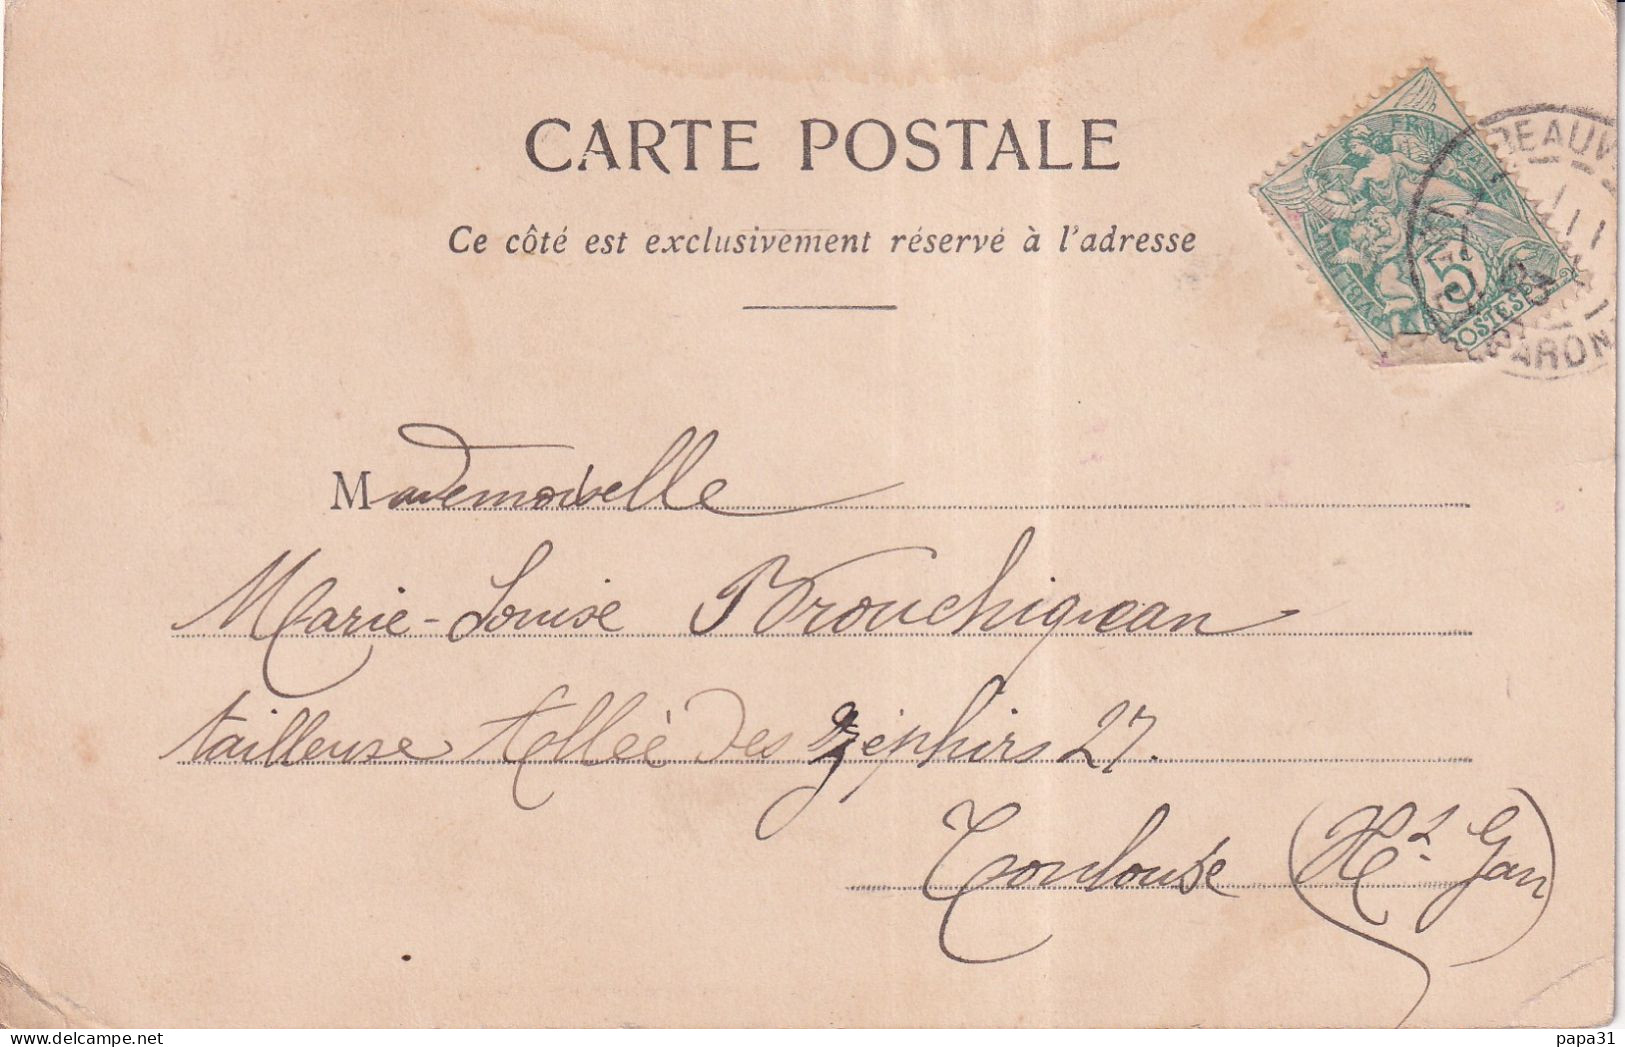 CARTE POSTALE
Ce côté est exclusivement réservé à l'adresse
FRANÇAISE
5
POSTES
BEAUV
03
GARON
Mademoiselle
Marie-Louise Brouchignan
tailleuse Allée des zéphirs 27.
Toulouse (Hte Gar)
delcampe.net
papa31